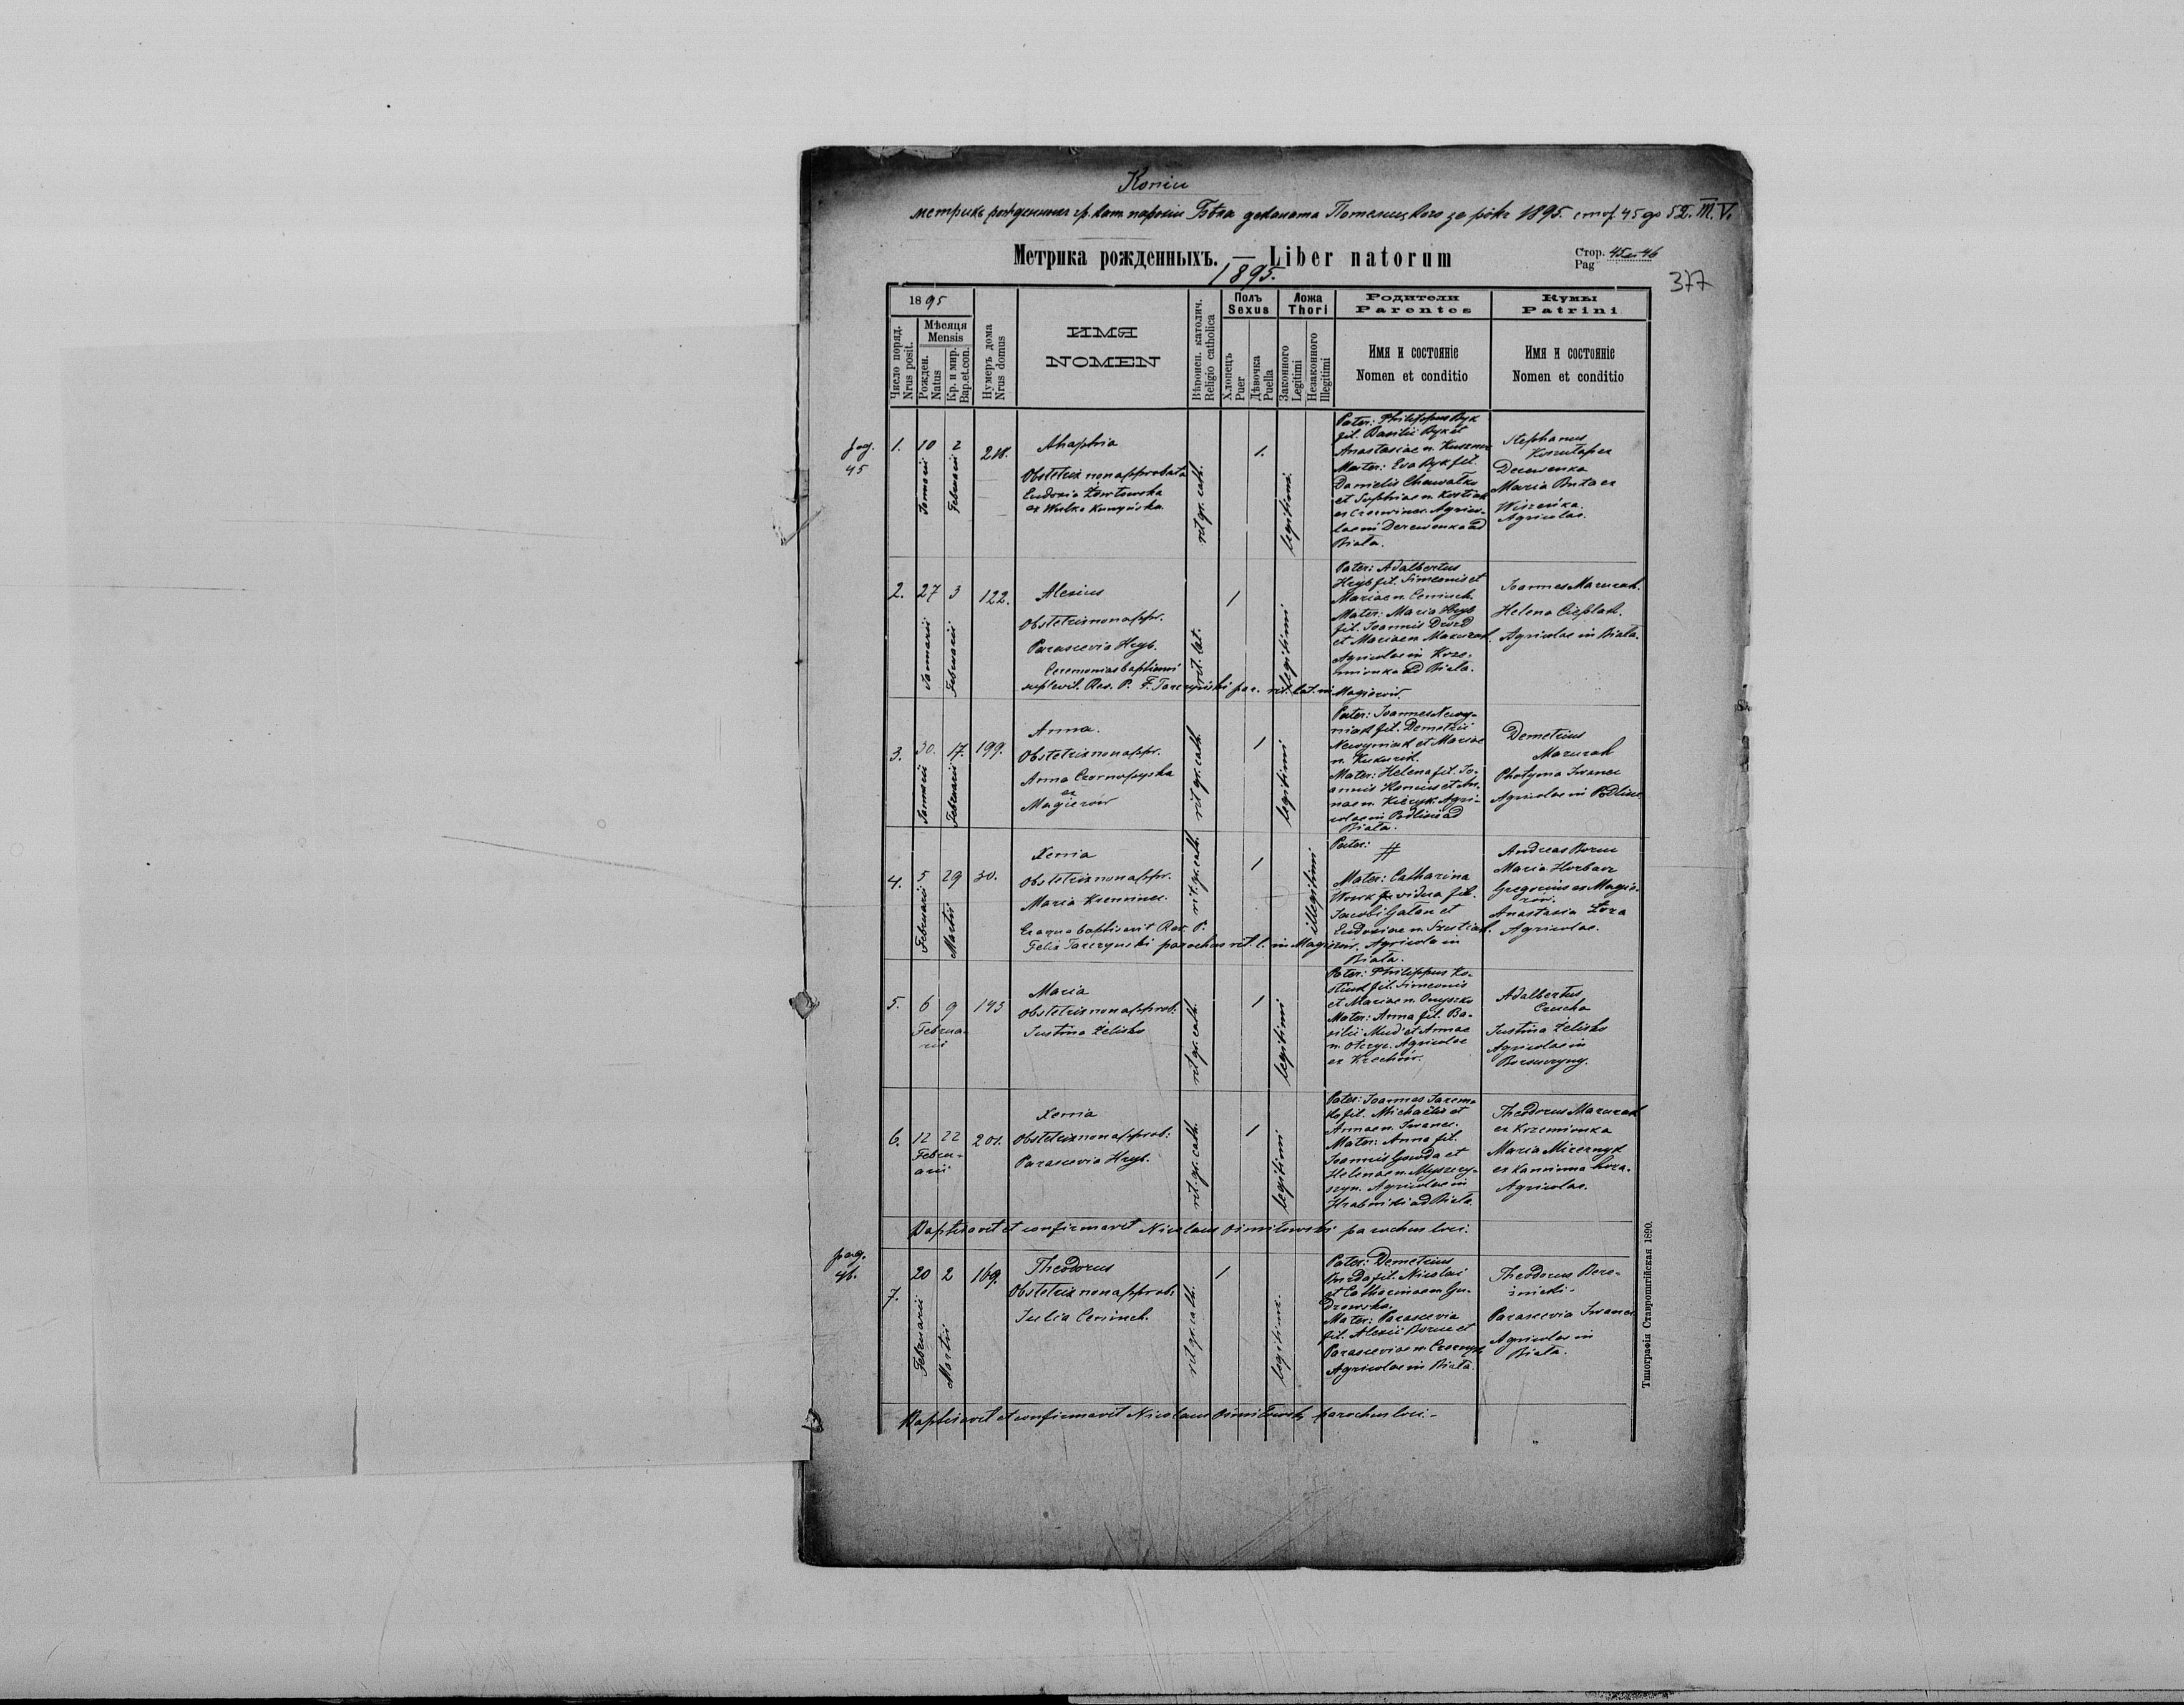 Копии
метрикъ рожденныхъ гр. кат. парохіи Бѣла деканата Потелицкого за рôкъ 1895. стор. 45 до 52. III. V.
Метрика рожденныхъ. — Liber natorum
1895.
Стор. 45 et 46
Pag
377
1895
Число поряд.
Nrus posit.
Мѣсяця
Mensis
Рожден.
Natus
Кр. и мир.
Bap.et.con.
Нумеръ дома
Nrus domus
ИМЯ
NOMEN
Вѣроисп. католич.
Religio catholica
Полъ
Sexus
Хлопецъ
Puer
Дѣвочка
Puella
Ложа
Thori
Законного
Legitimi
Незаконного
Illegitimi
Родители
Parentes
Имя и состояніе
Nomen et conditio
Кумы
Patrini
Имя и состояніе
Nomen et conditio
pag.
45
1.
10
Januarii
2
Februarii
218.
Ahaphia
Obstetrix non approbata
Eudoxia
ex Wulka Kunyńska.
rit. gr. cath.
1.
legitimi.
Pater: Philippus Byk
fil. Basilii Byk et
Anastasiae n.
Mater: Eva Byk fil.
Danielis Chawałko
et Sophiae n. Kostiuk
ex Agrico-
lae in Derewenka ad
Biała.
Stephanus
ex
Derewenka
Maria Buta ex
Wiszeńka.
Agricolae.
2.
27
Januarii
3
Februarii
122.
Alexius
Obstetrix non appr.
Parascevia Hryb.
Ceremonias baptismi
suplevit. Rev. P. F. Tarczyński par. rit. lat. in Magierów.
rit. lat.
1
legitimi
Pater: Adalbertus
Hryb fil. Simeonis et
Mariae n. Ceniuch.
Mater: Maria Hryb
fil. Joannis Drozd
et Mariae n. Mazurak.
Agricolae in Krze-
mionka ad Biała.
Joannes Mazurak.
Helena Cieplak.
Agricolae in Biała.
3.
30.
Januarii
17.
Februarii
199.
Anna.
Obstetrix non appr.
Anna Czornopyska
ex
Magierów
rit gr. cath.
1
legitimi
Pater: Joannes Newy-
niak fil. Demetrii
Newyniak et Mariae
n.
Mater: Helena fil. Jo-
annis et An-
nae n. Agri-
colae in Podlisie ad
Biała.
Demetrius
Mazurak
Photyna Iwanec
Agricolae in Podlisie
4.
5
Februarii
29
Martii
30.
Xenia
Obstetrix non appr.
Maria
Ex aqua baptisavit Rev. P.
Felix Tarczynski parochus rit. l. in Magierów.
rit. gr. cath.
1
illegitimi
Pater: #
Mater: Catharina
Wowk vidua fil.
Jacobi Gałan et
Eudoxiae n.
Agricola in
Biała.
Andreas Borus
Maria Horbacz
Gregorius ex Magie-
rów.
Anastasia Łoza
Agricolae.
5.
6
9
Februa-
rii
193
Maria
Obstetrix non approb.
Justina Żelisko
rit gr. cath.
1
legitimi
Pater: Philippus Ko-
stiuk fil. Simeonis
et Mariae n. Onyszko
Mater: Anna fil. Ba-
silii Mud' et Annae
n. Agricolae
ex Krechów.
Adalbertus
Czucha
Justina Żelisko
Agricolae in
Borsuczyny.
6.
12
22
Febru-
arii
201.
Xenia
Obstetrix non approb:
Parascevia Hryb.
rit. gr. cath.
1
legitimi
Pater: Joannes Jarem-
ko fil. Michaelis et
Annae n. Iwanec.
Mater: Anna fil.
Joannis Gowda et
Helenae n. Myszczy-
szyn. Agricolae in
Hrabniki ad Biała.
Theodorus Mazurak
ex Krzemionka
Maria Mizernyk
ex Kaminna hora.
Agricolae.
Baptisavit et confirmavit Nicolaus Osmiłowski parochus loci.
pag.
46.
7.
20
Februarii
2
Martii
169.
Theodorus
Obstetrix non approb.
Julia Ceniuch.
rit gr. cath.
1
legitimi.
Pater: Demetrius
Burda fil. Nicolai
et Catharinae n. Gu-
drowska.
Mater: Parascevia
fil. Alexii Borus et
Parasceviae n. Czornyk
Agricolae in Biała.
Theodorus Bere-
źnicki.
Parascevia Iwanec
Agricolae in
Biała.
Baptisavit et confirmavit Nicolaus Osmiłowski parochus loci.-
Типографія Ставропигійская 1890.